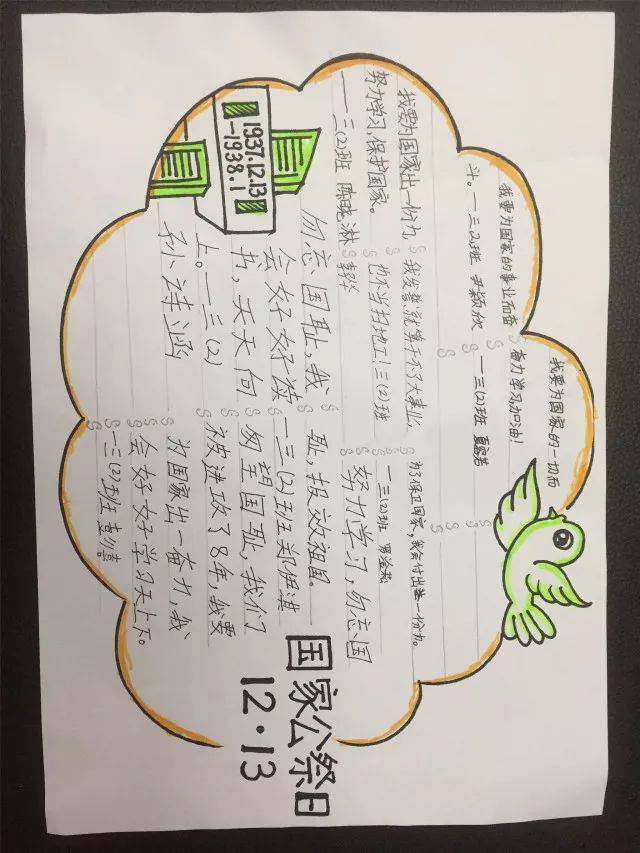 国家公祭日
12·13
1937.12.13
-1938.1
我要为国家的一切而
奋力学习加油!
一三(2)班
我要为国家的事业而奋
斗。一三(2)班 尹颖欣
我要为国家出一份力
努力学习,保护国家。
一一三(2)班 陈晓淋
我发誓,就算干不了大事业,
也不当扫地工!三(2)班
为了保卫国家,我会付出一份力。
一三(2)班
努力学习,勿忘国
耻,报效祖国。
一三(2)班郑伊淇
勿忘国耻,我
会好好读
书,天天向
上。一三(2)
孙诗涵
勿望国耻,我们
被进攻了8年,我要
为国家出一奋力,我
会好好学习天上下。
一三(2)班